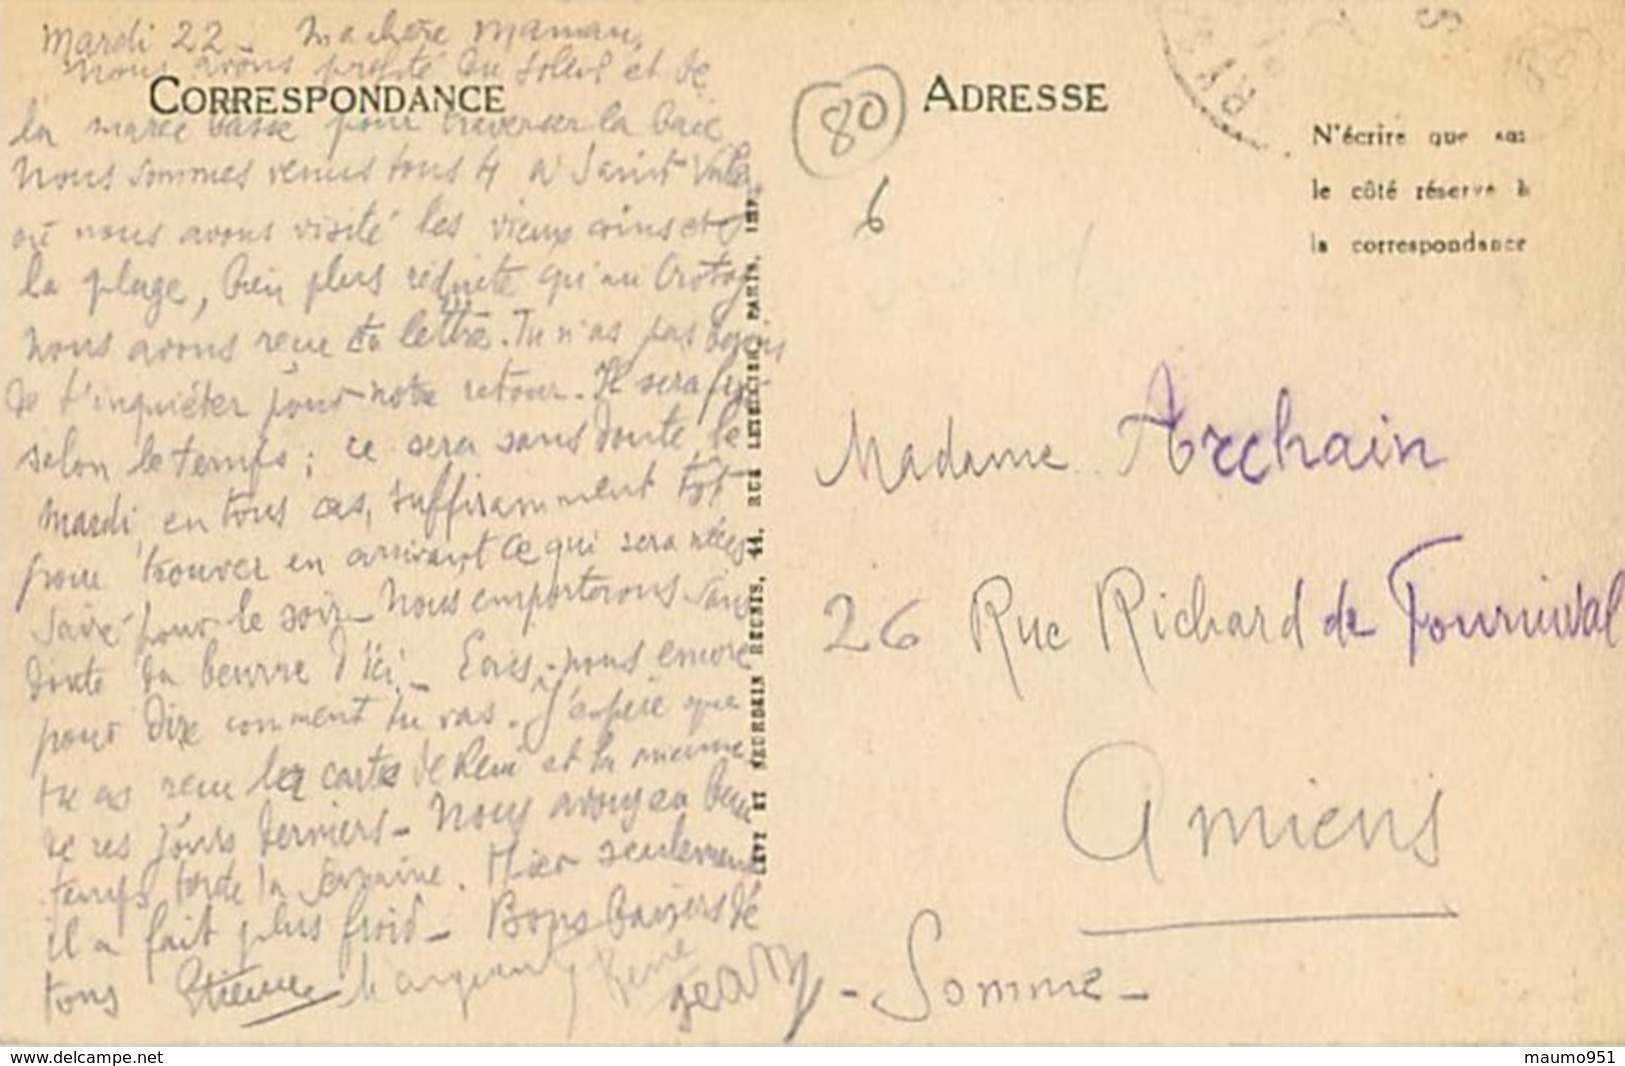 Mardi 22 - Ma chère Maman,
nous avons profité du soleil et de
CORRESPONDANCE
la marée basse pour traverser la baie
Nous sommes venus tous 4 à Saint Valery
où nous avons visité les vieux coins et
la plage, bien plus réduite qu'au Crotoy
Nous avons reçue ta lettre. Tu n'as pas besoin
de t'inquiéter pour notre retour. Il sera fixé
selon le temps ; ce sera sans doute le
mardi, en tous cas, suffisamment tôt
pour trouver en arrivant ce qui sera néces
saire pour le soir - Nous emporterons sans
doute du beurre d'ici - Ecris-nous encore
pour dire comment tu vas. J'espère que
tu as reçu les cartes de René et la mienne
de ces jours derniers - Nous avons eu beau
temps toute la semaine. Hier seulement
il a fait plus froid - Bons baisers de
tous Etienne Marguerite René
Jean
LEVY ET NEURDEIN REUNIS, 44, RUE LETELLIER, PARIS, IMP.
80
6
ADRESSE
N'écrire que sur
le côté réservé à
la correspondance
Madame Archain
26 Rue Richard de Fournival
Amiens
- Somme -
www.delcampe.net
maumo951